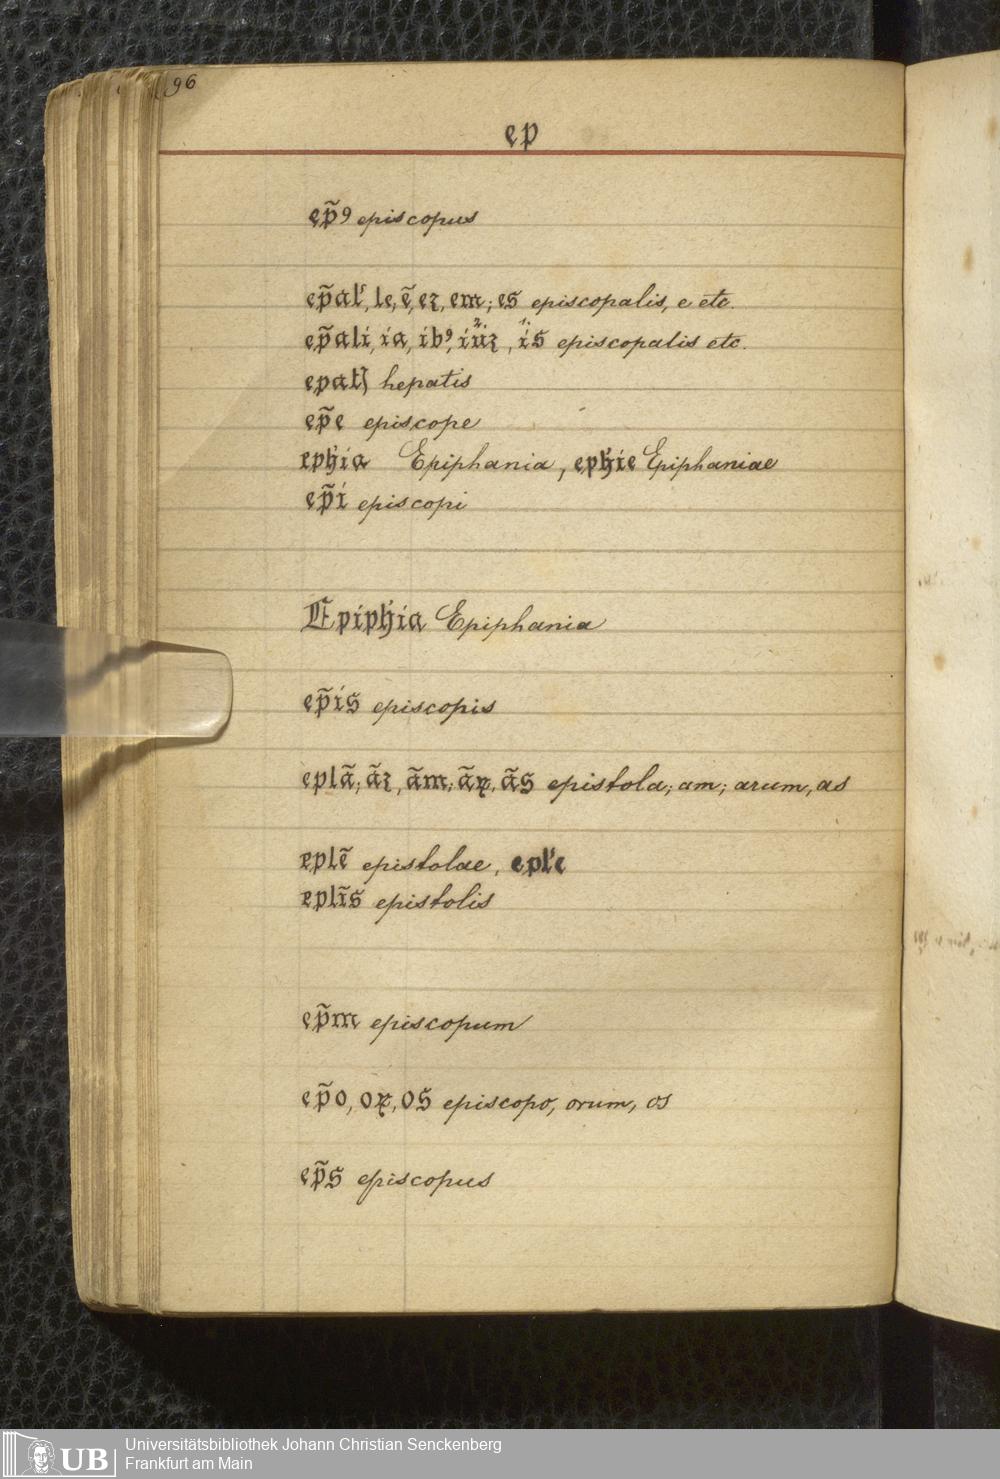 96
ep
ep̃ꝰ episcopus
ep̃al', le, ẽ, eꝛ, em; es episcopalis, e etc.
ep̃ali, ia, ibꝰ, iũꝛ, is episcopalis etc.
epat hepatis
ep̃e episcope
epħia Epiphania, epħie Epiphaniae
ep̃i episcopi
Epipħia Epiphania
ep̃is episcopis
eplã; ãꝛ, ãm; ãꝝ, ãs epistola; am; arum, as
eplẽ epistolae, epl'e
eplĩs epistolis
ep̃m episcopum
ep̃o, oꝝ, os episcopo, orum, os
ep̃s episcopus
UB
Universitätsbibliothek Johann Christian Senckenberg
Frankfurt am Main